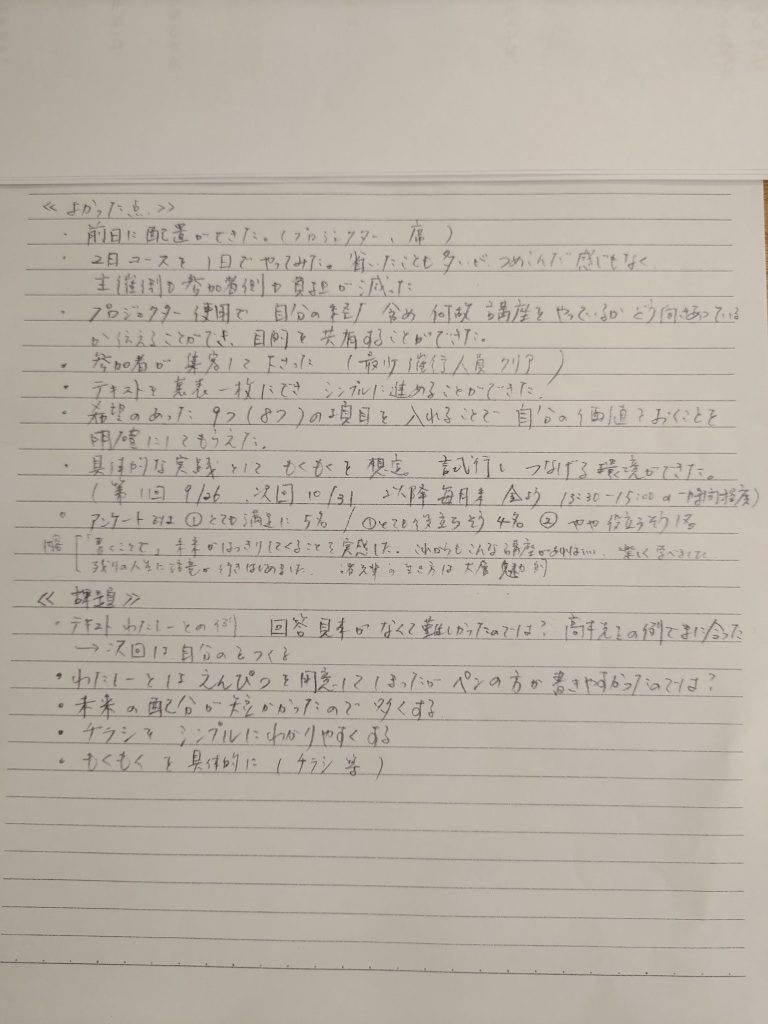 ≪よかった点≫
・前日に配置ができた。(プロジェクター、席)
・2日コースを1日でやってみた。省いたことも多いが、つめこんだ感じもなく
主催側も参加者側も負担が減った
・プロジェクター使用で 自分の経た 含め 何故 講座をやっているか どう向きあっている
か伝えることができ、目的を共有することができた。
・参加者が集客して下さった (最少催行人員クリア)
・テキストを裏表一枚にでき シンプルに進めることができた。
・希望のあった 9つ(8つ)の項目を入れることで 自分の価値をおくことを
明確にしてもらえた。
・具体的な実践として もくもくを想定。試行し つなげる環境ができた。
(第1回 9/26 次回 10/31 以降 毎月末 金よう 13:30-15:00の一時間程度)
・アンケートでは ①とても満足に5名/①とても役立ちそう4名 ② やや役立ちそう1名
「書くことで」未来がはっきりしてくることを実感した。これからもこんな講座があればいい。楽しく学べました
残りの人生に注意が行きはじめました。 の生き方は大層魅力的
≪課題≫
・テキストわたしーとの例 回答見本がなくて難しかったのでは? の例でまに合った
→次回は自分のをつくる
・わたしーとはえんぴつを用意してしまったがペンの方が書きやすかったのでは?
・未来の配分が短かかったので多くする
・チラシをシンプルにわかりやすくする
・もくもくを具体的に(チラシ等)